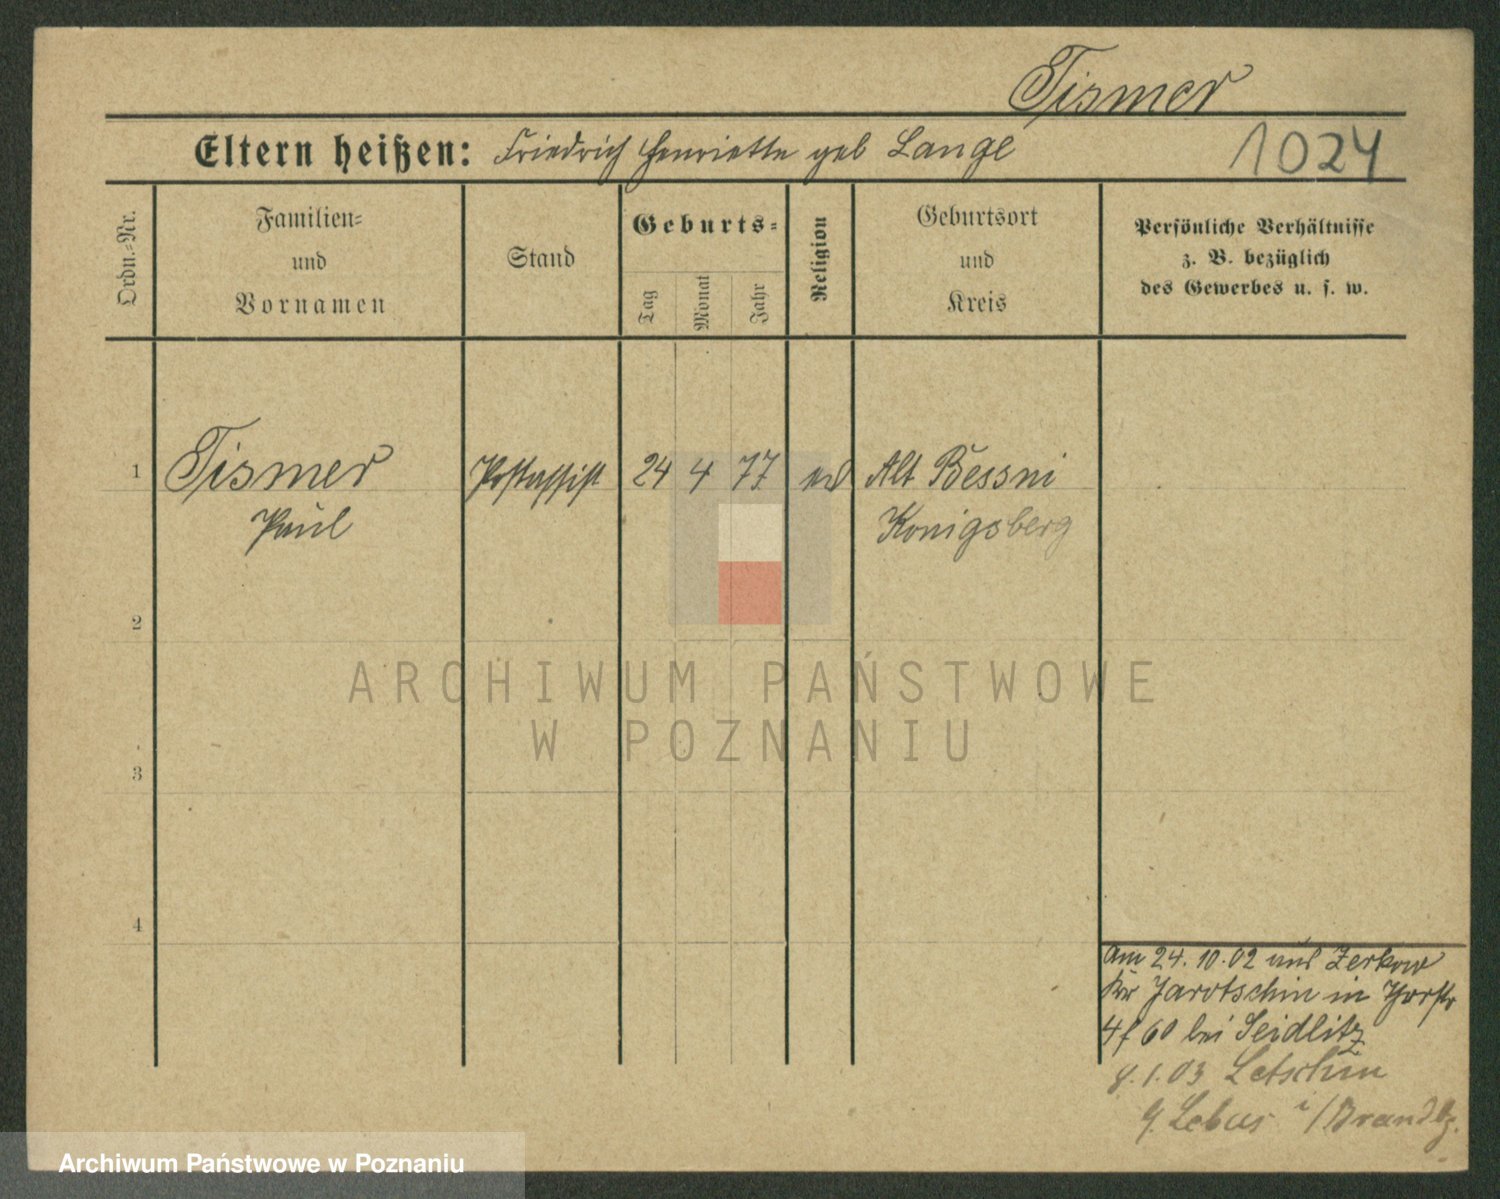 Tismer
Eltern heißen: Friedrich Henriette geb Lange 1024
Ordn.=Nr. Familien= und Vornamen Stand Geburts= Tag Monat Jahr Religion Geburtsort und Kreis Persönliche Verhältnisse z. B. bezüglich des Gewerbes u. s. w.
1 Tismer Postassist 24 4 77 ev Alt Bessni
Paul Königsberg
2
ARCHIWUM PAŃSTWOWE
W POZNANIU
3
4
Am 24.10.02 aus Zerkow
Kr Jarotschin in
4 f 60 bei Seidlitz
8.1.03 Letschin
Lebus i/Brandbg.
Archiwum Państwowe w Poznaniu